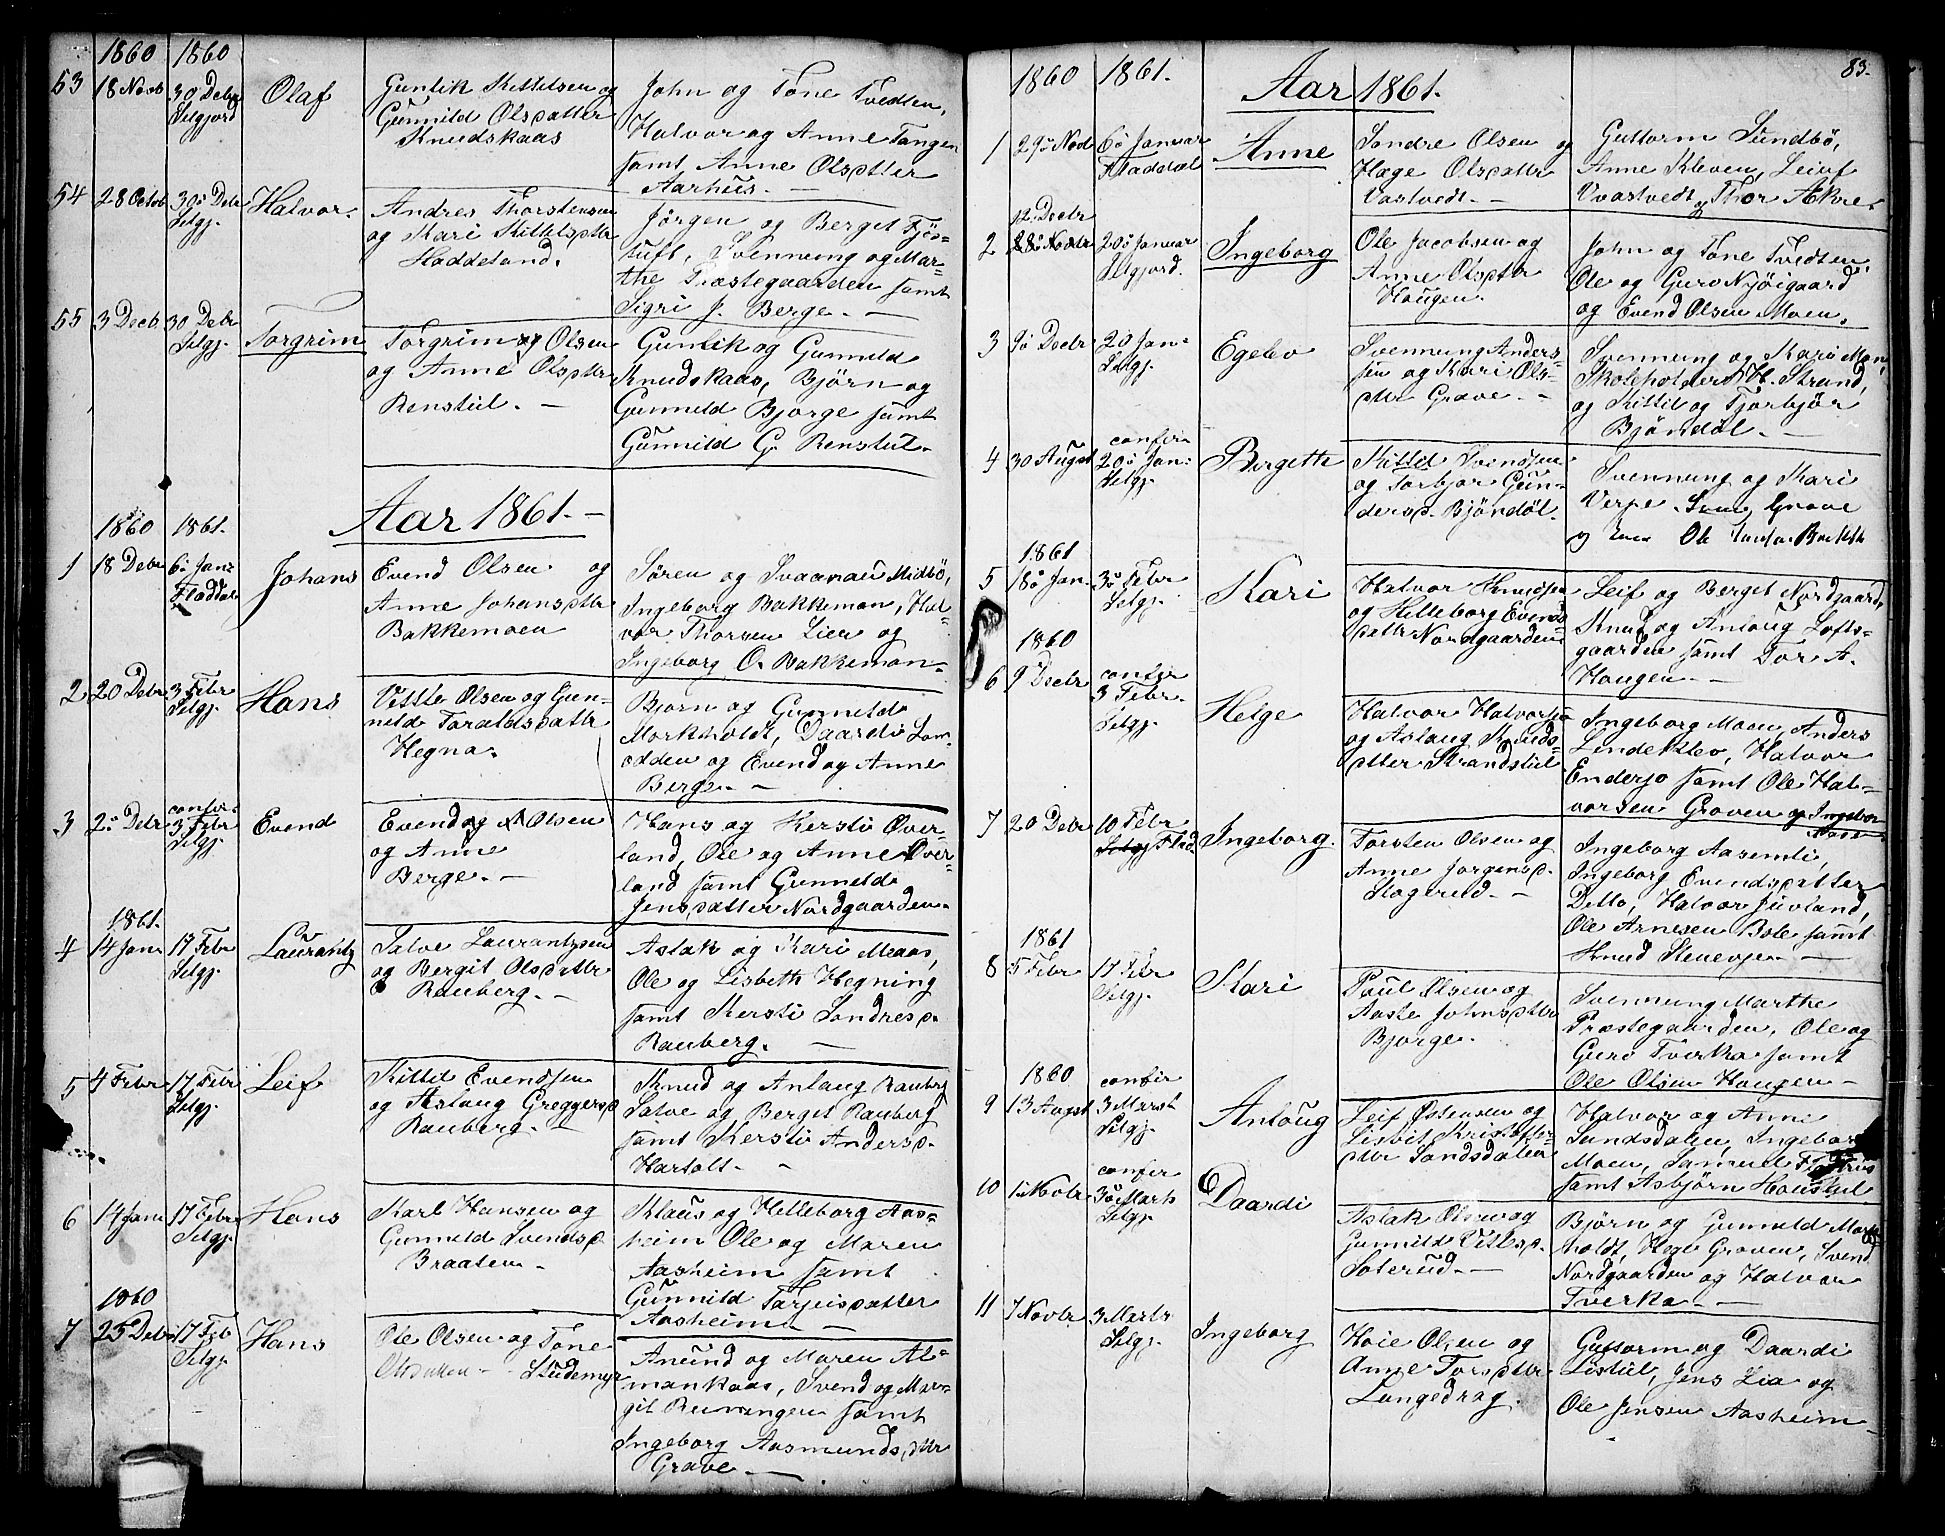 1860 1860
53 18 Novb 30 Debr Selgjord Olaf Gunlik Kittilsen og
Gunnild Olsdatter
Knudskaas
John og Tone Tvedten,
Halvor og Anne Tangen
samt Anne Olsdtter
Aarhus. —
54 28 Octob 30 Debr Selgj. Halvor. Andres Thorstensen
og Kari Kittilsdtr
Haddeland.
Jörgen og Berget Fjös-
tuft, Svennung og Mar-
the Præstegaarden samt
Sigri J. Berge. —
55 3 Decb. 30 Debr Selgj. Torgrim Torgrim Olsen
og Anne Olsdttr
Renstul. —
Gunlik og Gunnild
Knudskaas, Björn og
Gunnild Bjorge samt
Gunnild G. Renstul. —
Aar 1861. —
1860 1861.
1 18 Debr 6 Jan: Fladdal Johans Evend Olsen og
Anne Johansdttr
Bakkemoen
Sören og Svaanau Midbö,
Ingeborg Bakkeman, Hal-
vor Thorsen Lier og
Ingeborg O. Bakkeman.
2 20 Debr 3 Febr Selgj. Hans Vetle Olsen og Gun-
nild Toraldsdattr
Hegna.
Bjorn og Gunnild
Morkholdt, Daardi Lon-
odden og Evend og Anne
Berge. —
3 2 Debr confir: 3 Febr Selgj. Evend Evend Olsen
og Anne
Berge. —
Hans og Kersti Over-
land, Ole og Anne Over-
land samt Gunnild
Jensdatter Nordgaarden.
1861.
4 14 Janr 17 Febr Selgj. Laurantz Salve Laurantzsen
og Bergit Olsdattr
Rauberg. —
Aslak og Kari Maas,
Ole og Lisbeth Hegning
samt Kersti Sondresd.
Rauberg. —
5 4 Febr 17 Febr Selgj. Leif Kittil Evendsen
og Aslaug Greggersd
Rauberg. —
Knud og Anlaug Rauberg
Salve og Berget Rauberg
samt Kersti Andersd.
Hartolt. —
6 14 Janr 17 Febr Selgj. Hans Karl Hansen og
Gunnild Svendsd
Braaten. —
Klaus og Helleborg Aas-
heim Ole og Maren
Aasheim samt
Gunnild Tarjeisdatter
Aasheim. —
1860
7 25 Debr 17 Feb Selgj. Hans Ole Olsen og Tone
Studemyr
Anund og Maren Al-
mankaas, Svend og Mar-
git Runingen samt
Ingeborg Aasmundsdttr
Grave. —
83.
1860 1861. Aar 1861.
1 29 Nov 6 Januar Fladdal Anne Sondre Olsen og
Hage Olsdattr
Vastvedt. —
Guttorm Sundbö,
Anne Kleven, Leiuf
Vvastvedt og Thor Akre.
2 12 Decbr 20 Januar Selgjord. Ingeborg Ole Jacobsen og
Anne Olsdttr
Haugen.
John og Tone Tvedten,
Ole og Guro Nyöigaard
og Evend Olsen Moen.
3 9 Decbr 20 Jan: Selgj. Egelev Svennung Anders-
sen og Kari Ols-
dttr Grave. —
Svennung og Kari Moen,
Skoleholder H. Strand,
og Kittil og Tjorbjör
Bjöndöl. —
4 30 Augst confir 20 Jan: Selgj. Birgitte Kittil Svendsen
og Torbjor Gun-
dersd. Bjöndöl.
Svennung og Kari
Verpe Grave
og Ole
1861
5 18 Jan. 3 Febr Selgj. Kari Halvor Knudsen
og Helleborg Evends-
dattr Nordgaarden
Leif og Berget Nordgaard,
Knud og Anlaug Lofts-
gaarden samt Tor A.
Haugen. —
1860
6 9 Decbr confir 3 Febr. Selgj. Helge Halvor Halvorsen
og Aslaug Knuds-
datter Strandstul
Ingeborg Moen, Anders
Lindeklev, Halvor
Enderjo samt Ole Hal-
vorsen Groven og Ingebor
7 20 Debr 10 Febr Flad. Ingeborg. Torsten Olsen og
Anne Jorgensd.
Skogerud. —
Ingeborg Aasemli,
Ingeborg Evendsdatter
Ditto, Halvor Juvland,
Ole Arnesen Bole samt
Knud Stenevje. —
1861
8 5 Febr 17 Febr Selgj. Kari Poul Olsen og
Aaste Johnsdttr
Bjorge.
Svennung Marthe
Præstegaarden, Ole og
Guro Tverka samt
Ole Olsen Haugen —
1860
9 13 Augst confir 3 Marts Selgj. Anlaug Leif Östensen og
Lisbit Kristoffers-
dttr Sandsdalen
Halvor og Anne
Sundsdalen, Ingebor
Moen, Samuel
samt Asbjörn Haustul
10 1 Novbr confir 3 Marts Selgj. Daardi Aslak Olsen og
Gunnild Vetlesd.
Soterud. —
Björn og Gunnild Mork-
holdt, Hege Groven, Svend
Nordgaarden og Halvor
Tverka. —
11 7 Novbr 3 Marts Selgj. Ingeborg Hoie Olsen og
Anne Torsdttr
Langedrag.
Guttorm og Daardi
Listul, Jens Lia og
Ole Jensen Aasheim